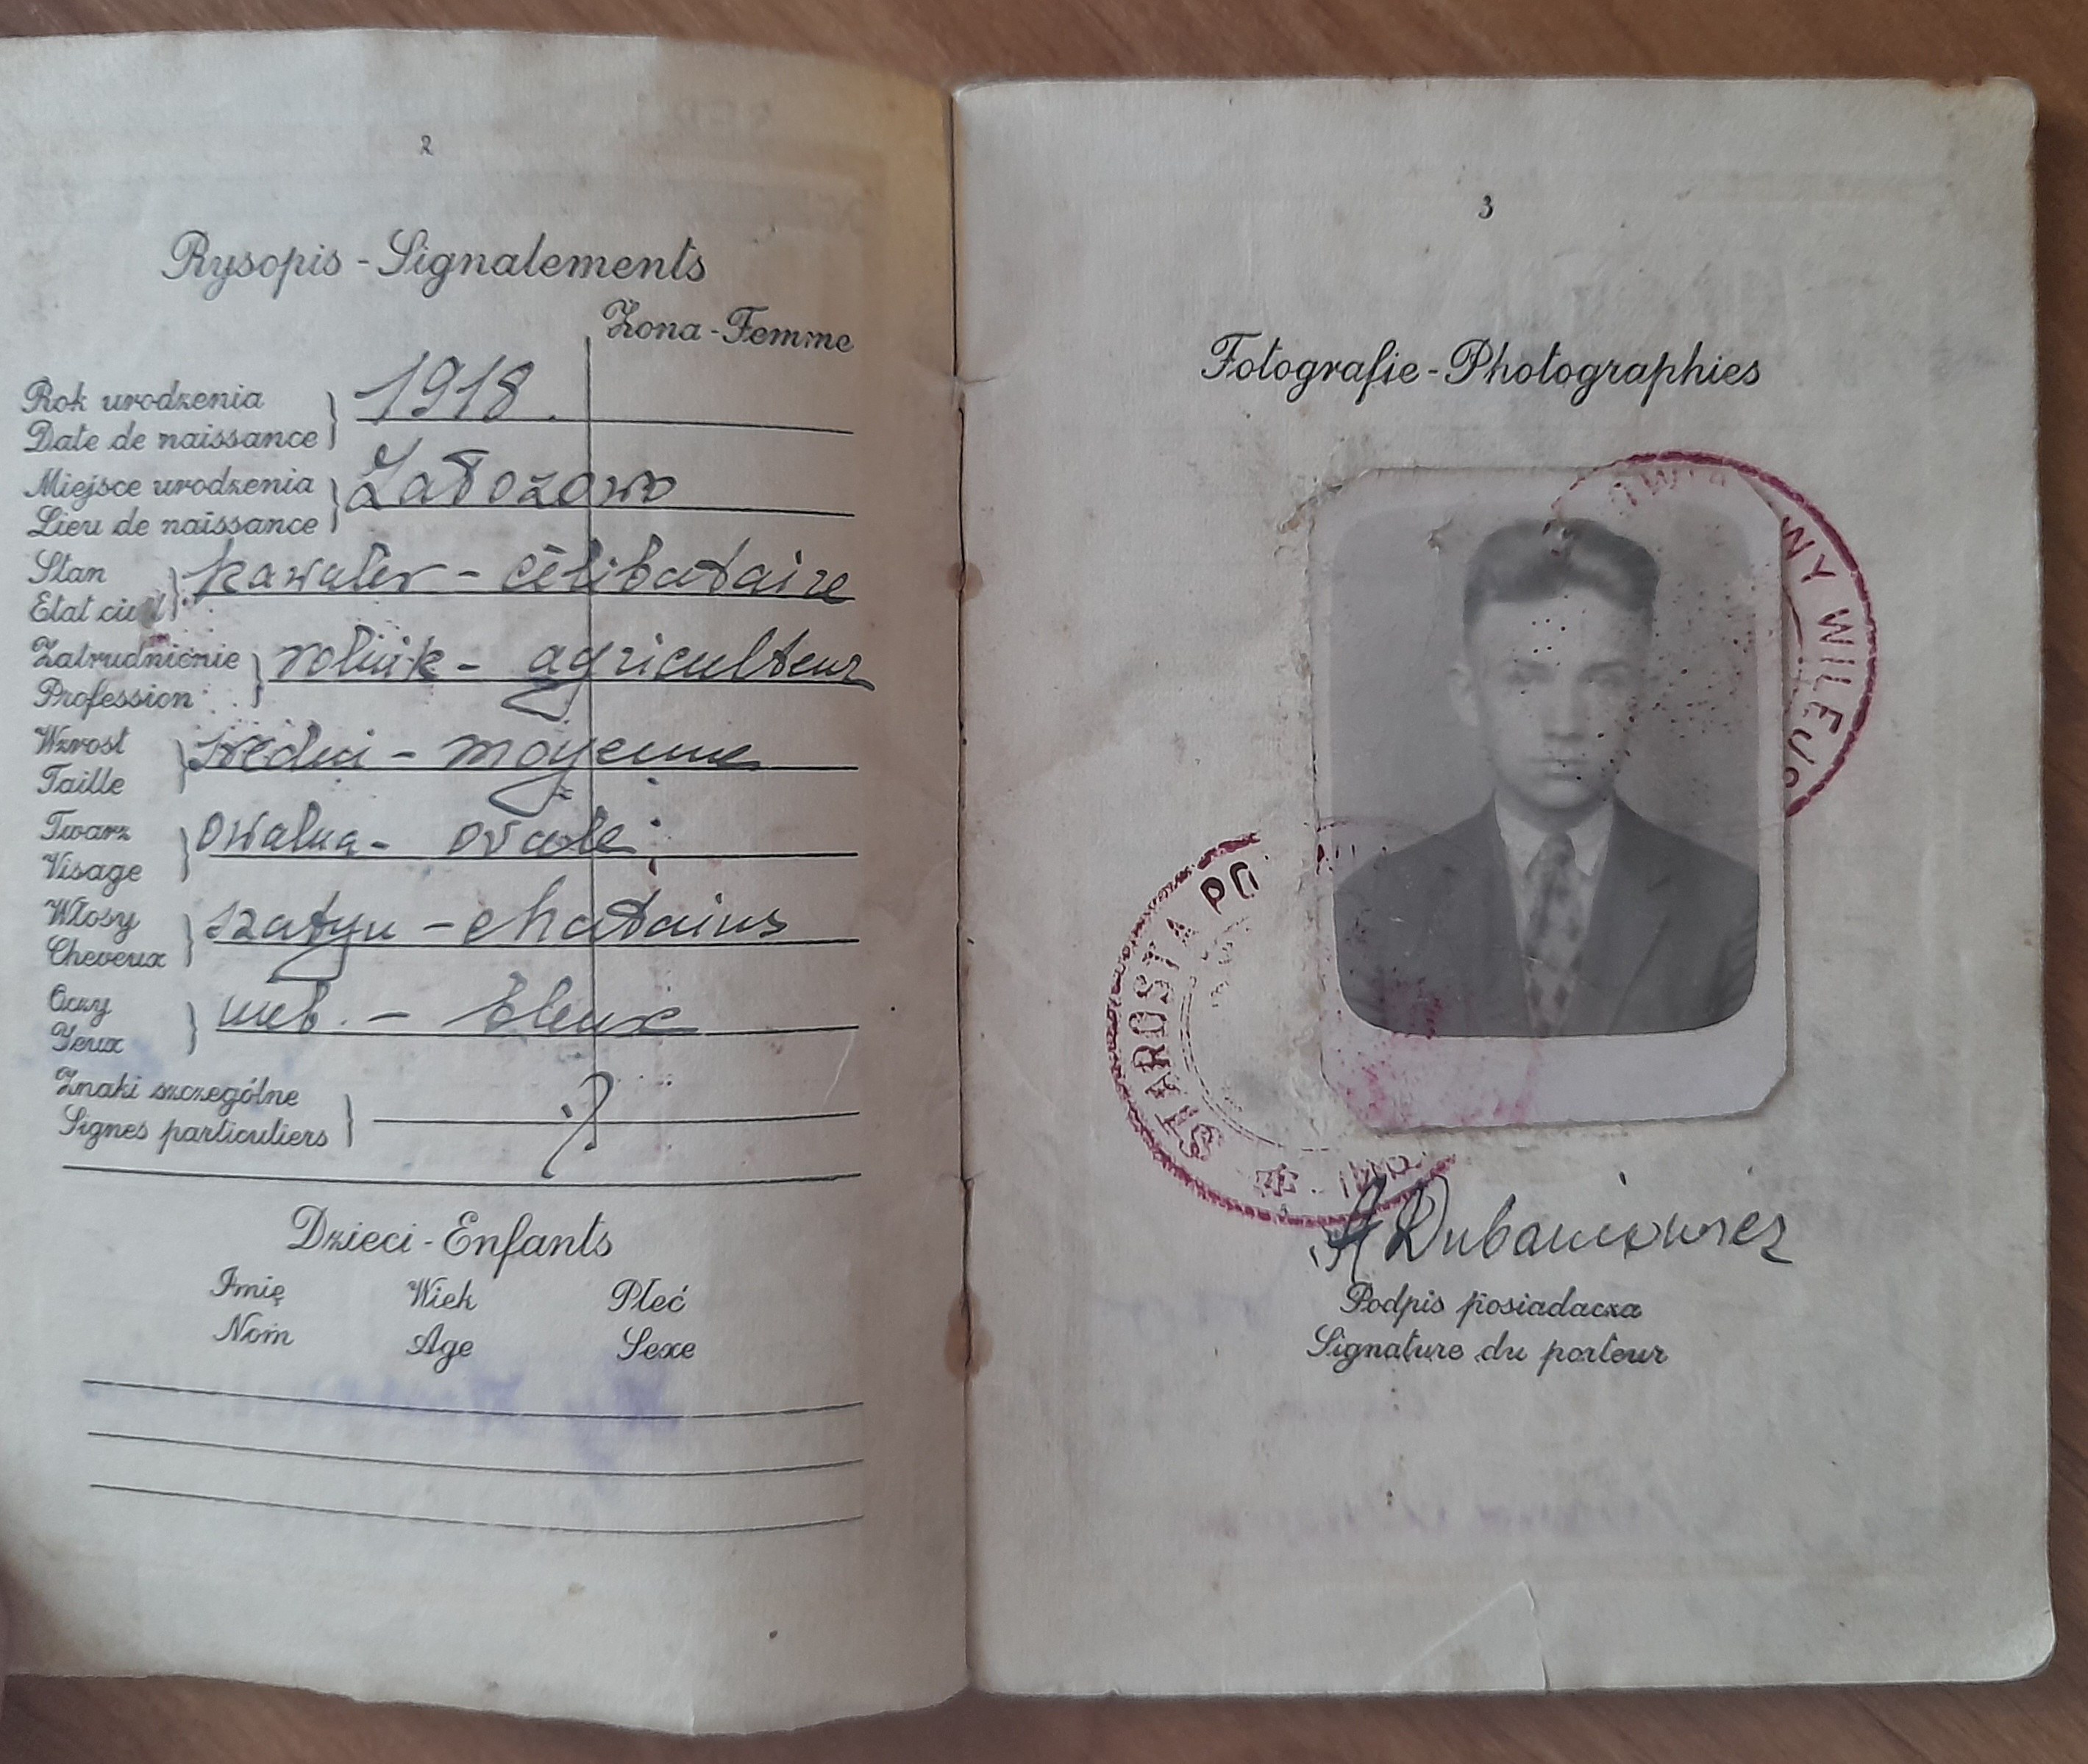 2
Rysopis - Signalements
Żona - Femme
Rok urodzenia
Date de naissance
1918.
Miejsce urodzenia
Lieu de naissance
Stan
Etat civil
kawaler - célibataire
Zatrudnienie
Profession
rolnik - agriculteur
Wzrost
Taille
średni - moyenne
Twarz
Visage
owalna - ovale
Włosy
Cheveux
szatyn - chatains
Oczy
Yeux
nieb. - bleux
Znaki szczególne
Signes particuliers
Dzieci - Enfants
Imię Wiek Płeć
Nom Age Sexe
3
Fotografie - Photographies
NY WILEJS
STAROSTA PO
A Dubaniewicz
Podpis posiadacza
Signature du porteur